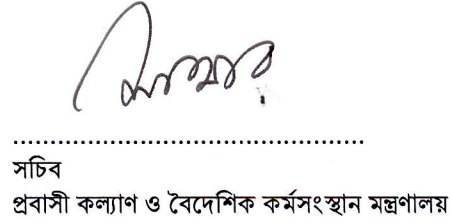 সচিব
প্রবাসী কল্যাণ ও বৈদেশিক কর্মসংস্থান মন্ত্রণালয়